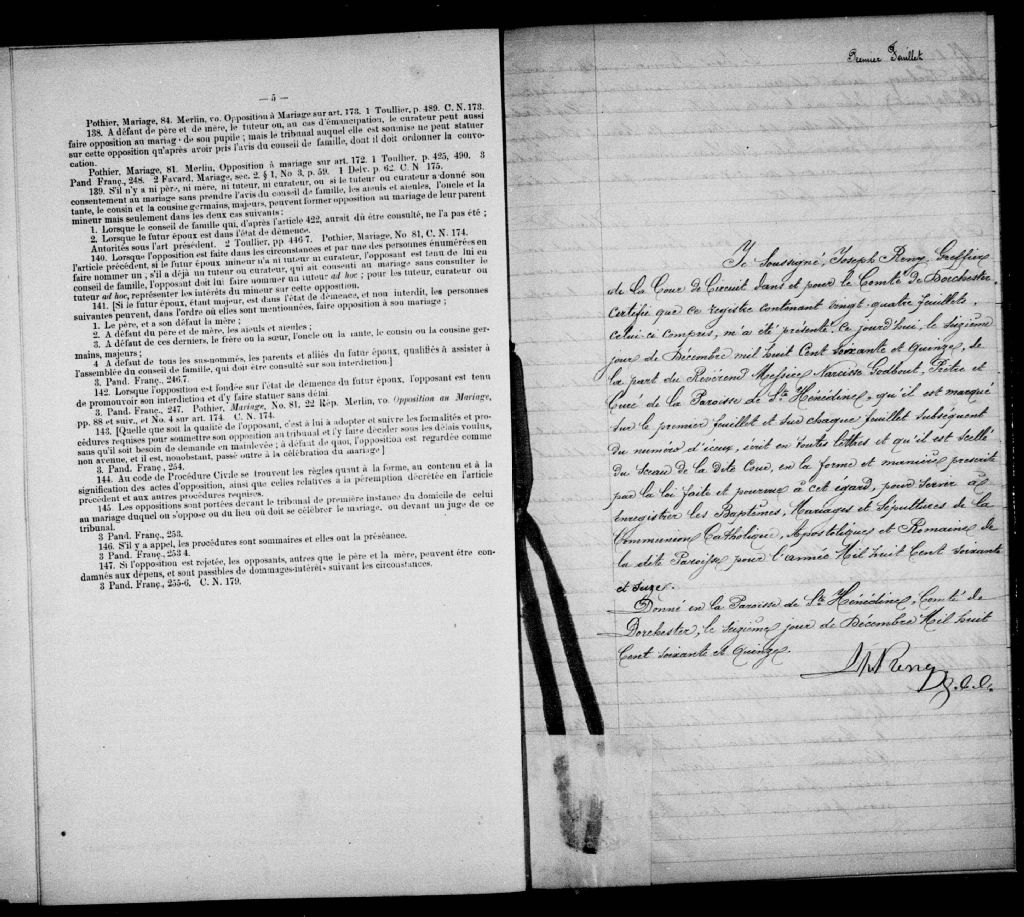 — 5 —
Pothier, Mariage, 84. Merlin, vo. Opposition à Mariage sur art. 173. 1 Toullier, p. 489. C. N. 173.
138. A défaut de père et de mère, le tuteur ou, au cas d'émancipation, le curateur peut aussi
faire opposition au mariag de son pupile ; mais le tribunal auquel elle est soumise ne peut statuer
sur cette opposition qu'après avoir pris l'avis du conseil de famille, dont il doit ordonner la convo-
cation.
Pothier, Mariage, 81. Merlin, Opposition à mariage sur art. 172. 1 Toullier, p. 425, 490. 3
Pand Franç., 248. 2 Favard, Mariage, sec. 2. § 1, No 3, p. 59. 1 Delv. p. 62. C. N 175.
139. S'il n'y a ni père, ni mère, ni tuteur, ni curateur, ou si le tuteur ou curateur a donné son
consentement au mariage sans prendre l'avis du conseil de famille, les aïeuls et aïeules, l'oncle et la
tante, le cousin et la cousine germains, majeurs, peuvent former opposition au mariage de leur parent
mineur mais seulement dans les deux cas suivants :
1. Lorsque le conseil de famille qui, d'après l'article 422, aurait dû être consulté, ne l'a pas été ;
2. Lorsque le futur époux est dans l'état de démence.
Autorités sous l'art présédent. 2 Toullier, pp 446 7. Pothier, Mariage, No 81, C. N. 174.
140. Lorsque l'opposition est faite dans les circonstances et par une des personnes énumérées en
l'article précédent, si le futur époux mineur n'a ni tuteur ni curateur, l'opposant est tenu de lui en
faire nommer un ; s'il a déjà un tuteur ou curateur, qui ait consenti au mariage sans consulter le
conseil de famille, l'opposant doit lui faire nommer un tuteur ad hoc ; pour les tuteur, curateur ou
tuteur ad hoc, représenter les intérêts du mineur sur cette opposition.
141. [Si le futur époux, étant majeur, est dans l'état de démence, et non interdit, les personnes
suivantes peuvent, dans l'ordre où elles sont mentionnées, faire opposition à son mariage ;
1. Le père, et a son défaut la mère ;
2. A défaut du père et de mère, les aïeuls et aïeules ;
3. A défaut de ces derniers, le frère ou la sœur, l'oncle ou la tante, le cousin ou la cousine ger-
mains, majeurs ;
4 A défaut de tous les sus-nommés, les parents et alliés du futur époux, qualifiés à assister à
l'assemblée du conseil de famille, qui doit être consulté sur son interdiction.]
3. Pand. Franç., 246.7.
142. Lorsque l'opposition est fondée sur l'état de démence du futur époux, l'opposant est tenu
de promouvoir son interdiction et d'y faire statuer sans délai
3. Pand. Franç., 247. Pothier, Mariage, No. 81, 22 Rép. Merlin, vo. Opposition au Mariage,
pp. 88 et suiv., et No. 4 sur art. 174. C. N. 174.
143. [Quelle que soit la qualité de l'opposant, c'est à lui à adopter et suivre les formalités et pro-
cédures requises pour soumettre son opposition au tribunal et l'y faire décider sous les délais voulus,
sans qu'il soit besoin de demande en mainlevée ; à défaut de quoi, l'opposition est regardée comme
non avenue, et il est, nonobstant, passé outre à la célébration du mariage]
3. Pand. Franç, 254.
144. Au code de Procédure Civile se trouvent les règles quant à la forme, au contenu et à la
signification des actes d'opposition, ainsi que celles relatives à la péremption décrétée en l'article
precédent et aux autres procédures requises.
145. Les oppositions sont portées devant le tribunal de première instance du domicile de celui
au mariage duquel on s'oppose ou du lieu où doit se célébrer le mariage, ou devant un juge de ce
tribunal.
3 Pand. Franç., 253.
146. S'il y a appel, les procédures sont sommaires et elles ont la préséance.
3 Pand. Franç., 253 4.
147. Si l'opposition est rejetée, les opposants, autres que le père et la mère, peuvent être con-
damnés aux dépens, et sont passibles de dommages-intérêts suivant les circonstances.
3 Pand. Franç., 255-6. C. N. 179.
Premier Feuillet
Je Soussigné, Joseph Remy, Greffier
de la Cour de Circuit dans et pour le Comté de Dorchester,
certifie que ce registre contenant vingt-quatre feuillets,
celui-ci compris, m'a été présenté, ce jourd'hui, le seizième
jour de Décembre mil huit Cent soixante et Quinze, de
la part du Révérend Messire Narcisse Godbout, Prêtre et
Curé de la Paroisse de Ste Hénédine, qu'il est marqué
sur le premier feuillet et sur chaque feuillet subséquent
du numéro d'iceux, écrit en toutes lettres et qu'il est scellé
du sceau de la dite Cour, en la forme et manière prescrit
par la loi faite et pourvue à cet égard, pour servir à
enregistrer les Baptêmes, Mariages et Sépultures de la
Communion Catholique, Apostolique et Romaine de
la dite Paroisse pour l'année Mil huit Cent soixante
et seize.
Donné en la Paroisse de Ste Hénédine, Comté de
Dorchester, le seizième jour de Décembre Mil huit
Cent soixante et Quinze.
Jh Remy
G. C. C.